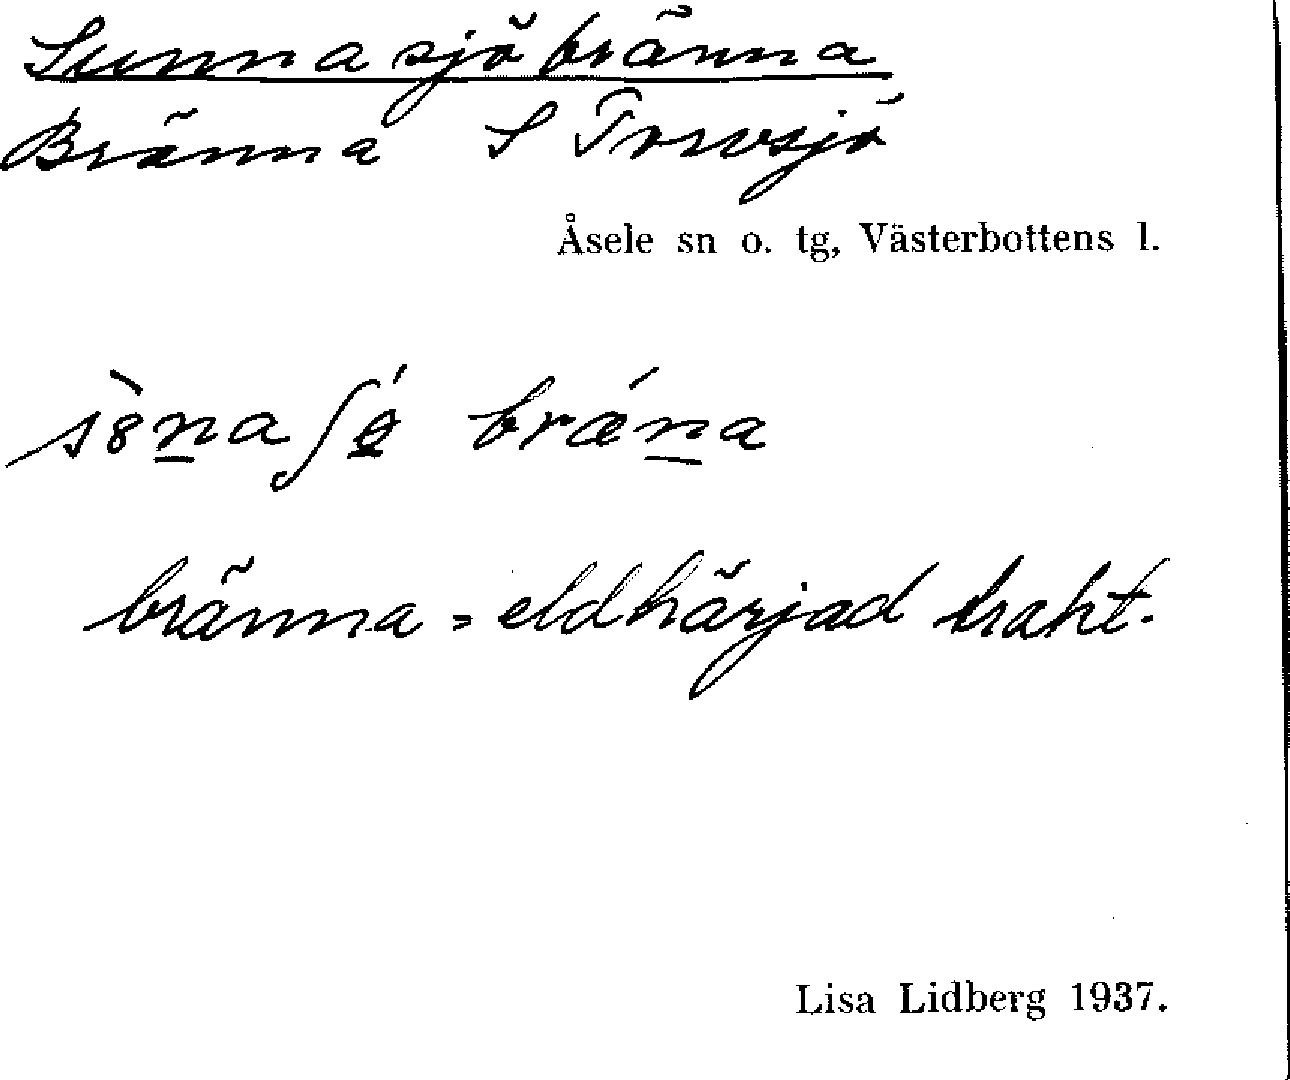 Sunnasjöbränna
Bränna S Torvsjö
Åsele sn o. tg, Västerbottens l.
bränna = eldhärjad trakt.
Lisa Lidberg 1937.